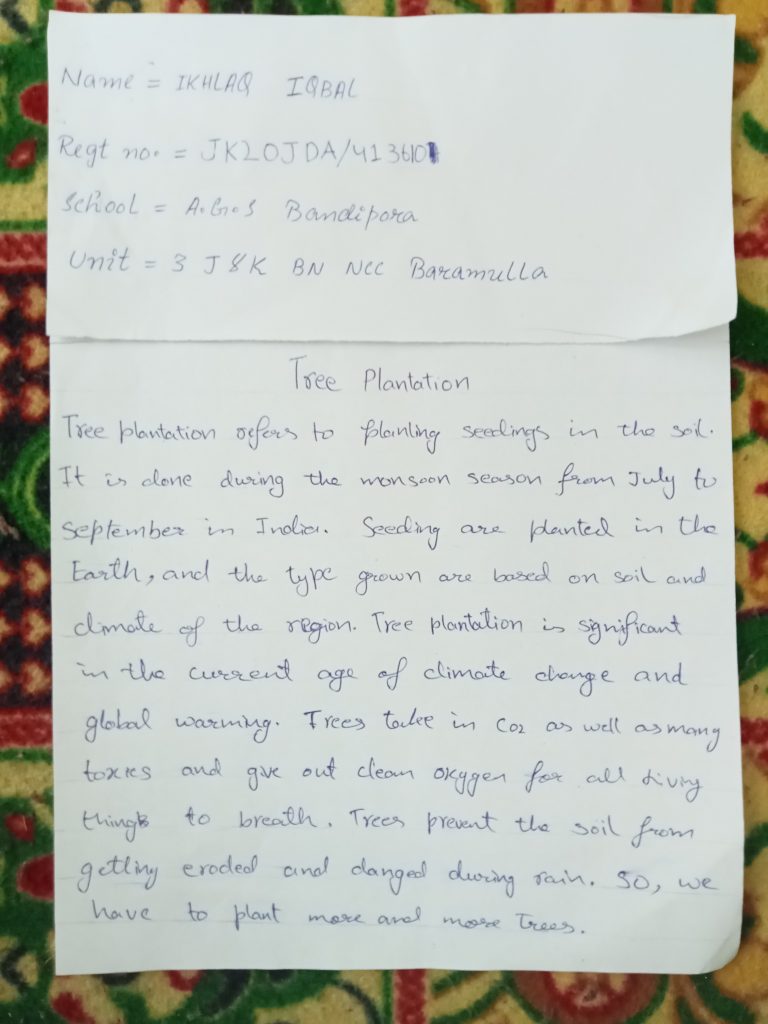 Name = IKHLAQ IQBAL
Regt no. = JK20JDA/413610
School = A.G.S Bandipora
Unit = 3 J&K BN NCC Baramulla
Tree Plantation
Tree plantation refers to planling seedings in the soil.
It is done during the monsoon season from July to
september in India. Seeding are planted in the
Earth, and the type grown are based on soil and
climate of the region. Tree plantation is significant
in the current age of climate change and
global warming. Trees take in CO2 as well as many
toxics and give out clean oxygen for all living
things to breath. Trees prevent the soil from
getting eroded and danged during rain. SO, we
have to plant more and more Trees.